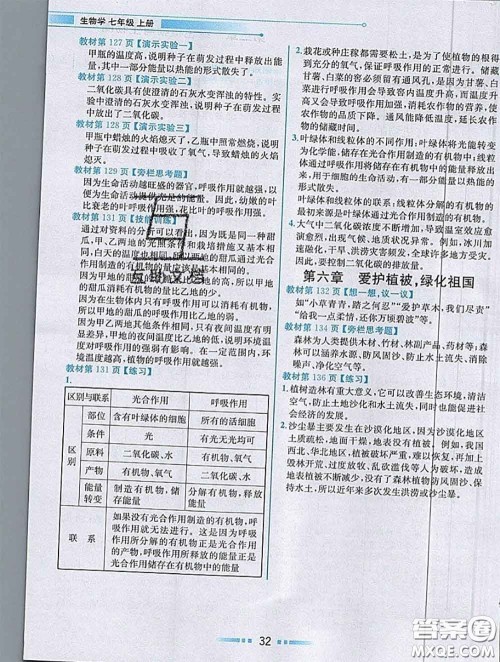 生物学 七年级 上册
教材第 127 页【演示实验一】
甲瓶的温度高,说明种子在萌发过程中释放出能
量,其中一部分能量以热能的形式散失了。
教材第 128 页【演示实验二】
二氧化碳具有使澄清的石灰水变浑浊的特性。实
验中澄清的石灰水变浑浊,说明种子在萌发过程中
放出了二氧化碳。
教材第 128 页【演示实验三】
甲瓶中蜡烛的火焰熄灭了,乙瓶中照常燃烧,说明
萌发的种子在萌发过程中吸收了氧气,导致蜡烛的火焰
熄灭。
教材第 129 页【旁栏思考题】
因为生命活动越旺盛的器官,呼吸作用就越强,以
便为生命活动提供充足的能量。因此,幼嫩的叶
比衰老的叶呼吸作用强,花比叶的呼吸作用强。
教材第 131 页【技能训练】
通过对资料的分析可以看出,因为既是同一种甜
瓜,甲、乙两地的光照条件和栽培措施又基本相
同,白天的温度也相同,所以甲、乙两地的甜瓜通
过光合作用制造的有机物应该基本相同。
因为在生物体内只有呼吸作用可以消耗有机物,
因为甲地甜瓜的有机物含量比乙地的低,所以甲
地甜瓜的呼吸作用消耗的有机物比乙地的多。
因为甲地的夜间温度比乙地的高,说明环境温度
对呼吸作用的强弱有影响。在一定范围内,环
境温度越高,植物的呼吸作用就越强。
教材第 131 页【练习】
1.
区别与联系 光合作用 呼吸作用
区别
部位 含有叶绿体的细胞 所有的活细胞
条件 光 有光无光均可
原料 二氧化碳、水 有机物、氧气
产物 有机物、氧气 二氧化碳、水
能量转变 制造有机物,储存能量 分解有机物,释放能量
联 系
如果没有光合作用制造的有机物,呼
吸作用就无法进行。这是因为呼吸
作用所分解的有机物正是光合作用
的产物,呼吸作用所释放的能量正是
光合作用储存在有机物中的能量
2. 栽花或种庄稼都需要松土,是为了使植物的根得
到充分的氧气,保证呼吸作用的正常进行。储藏
甘薯、白菜的窖必须通风,如果不通风,窖内会因
甘薯、白菜等的呼吸作用释放出来的热量积存在
窖内而使温度升高,而温度升高又会进一步使甘
薯、白菜等的呼吸作用加强,消耗农作物的营养,使
农作物的储藏时间变短。通风能降低温度,延长
农作物的储藏时间。
3. 叶绿体和线粒体的不同作用:叶绿体将光能转变
为化学能,储存在光合作用制造的有机物中;线
粒体将有机物中的化学能释放出来,供细胞利
用,用于细胞的生命活动,有一部分以热能的形
式散失。
叶绿体和线粒体的联系:线粒体分解的有机物的
来源是叶绿体通过光合作用制造的有机物。
4. 大气中二氧化碳浓度不断增高,导致温室效应愈
演愈烈,出现气候、地质状况异常。例如,冰川加
速融化,海平面上升,土地沙漠化,洪涝灾害等。
因此,要控制二氧化碳的排放。
第六章 爱护植被,绿化祖国
教材第 132 页【想一想,议一议】
如“小草青青,踏之何忍”“爱护草木,我们尽责”
“给我一点柔情,还你万顷碧波”等。
教材第 134 页【旁栏思考题】
森林为人类提供木材、竹材、林副产品、药材等;
森林能涵养水源、防风固沙、防止水土流失、消除
噪声、净化空气等。
教材第 136 页【练习】
1. 植树造林有重大意义,它可以改善生态环境,清洁
空气,防止土地沙化和水土流失,同时也能促进社
会经济的发展。
2. 沙尘暴主要发生在沙漠化地区,因为沙漠化地区
土质疏松,地质条件差,无植被覆盖。例如,我国
西北、华北地区,植被的减少,是由于几百年来上
毁林开荒,过度放牧,乱砍滥伐等人为破坏,造成
地表植被不断减少,没有了良好的植被防风固沙,
保持水土,所以近年来多次发生洪涝或沙尘暴。
32
答案圈
MXQE.COM